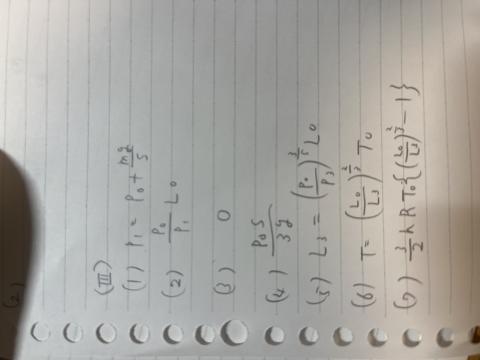 (2)
(III)
(1) P₁ = P₀ + mg/S
(2) P₀/P₁ L₀
(3) 0
(4) P₀S/3g
(5) L₃ = (P₀/P₃)^{3/5} L₀
(6) T = (L₀/L₃)^{2/3} T₀
(7) 3/2 nRT₀{(L₀/L₃)^{2/3} - 1}